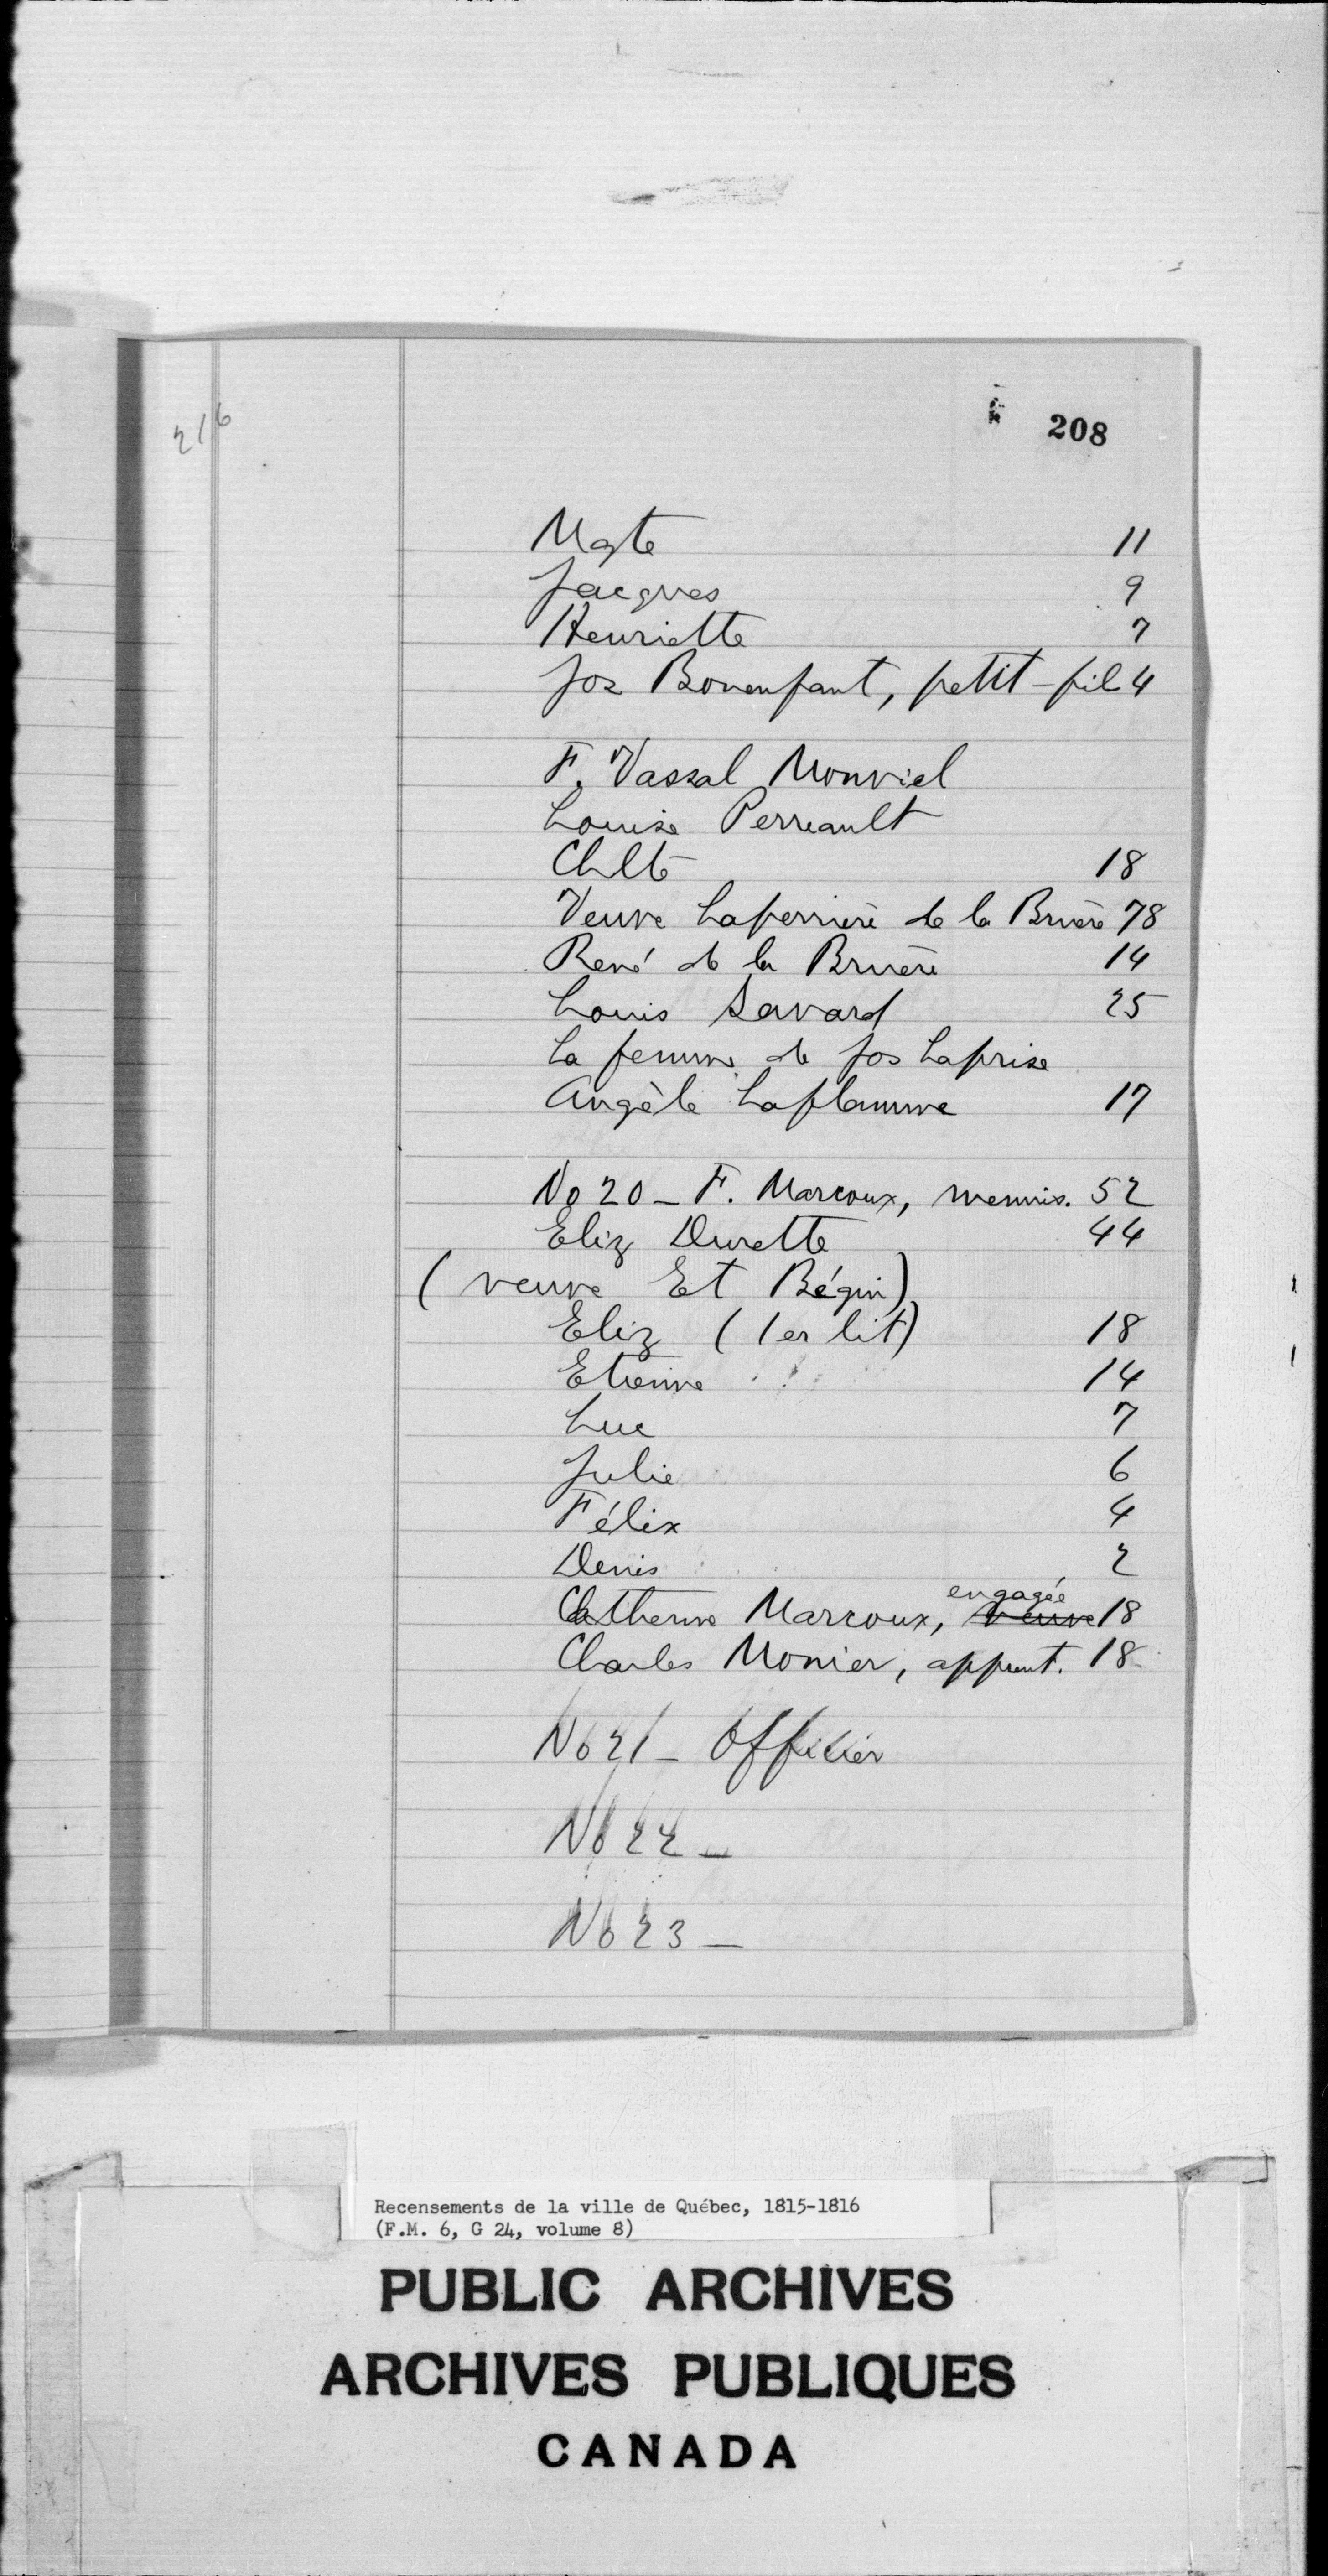 216
208
Mgte 11
Jacques 9
Henriette 7
Jos Bonenfant, petit-fils 4
F. Vassal Monviel
Louise Perreault
Chlte 18
Veuve Laperrière de la Bruère 78
René de la Bruère 14
Louis Savard 25
La femme de Jos Laprise
Angèle Laflamme 17
No 20 - F. Marcoux, menuis. 52
Eliz Durette 44
(veuve Et Bégin)
Eliz (1er lit) 18
Etienne 14
Luc 7
Julie 6
Félix 4
Denis 2
engagée
Catherine Marcoux, veuve 18
Charles Monier, apprent. 18
No 21 - Officier
No 22 -
No 23 -
Recensements de la ville de Québec, 1815-1816
(F.M. 6, G 24, volume 8)
PUBLIC ARCHIVES
ARCHIVES PUBLIQUES
CANADA